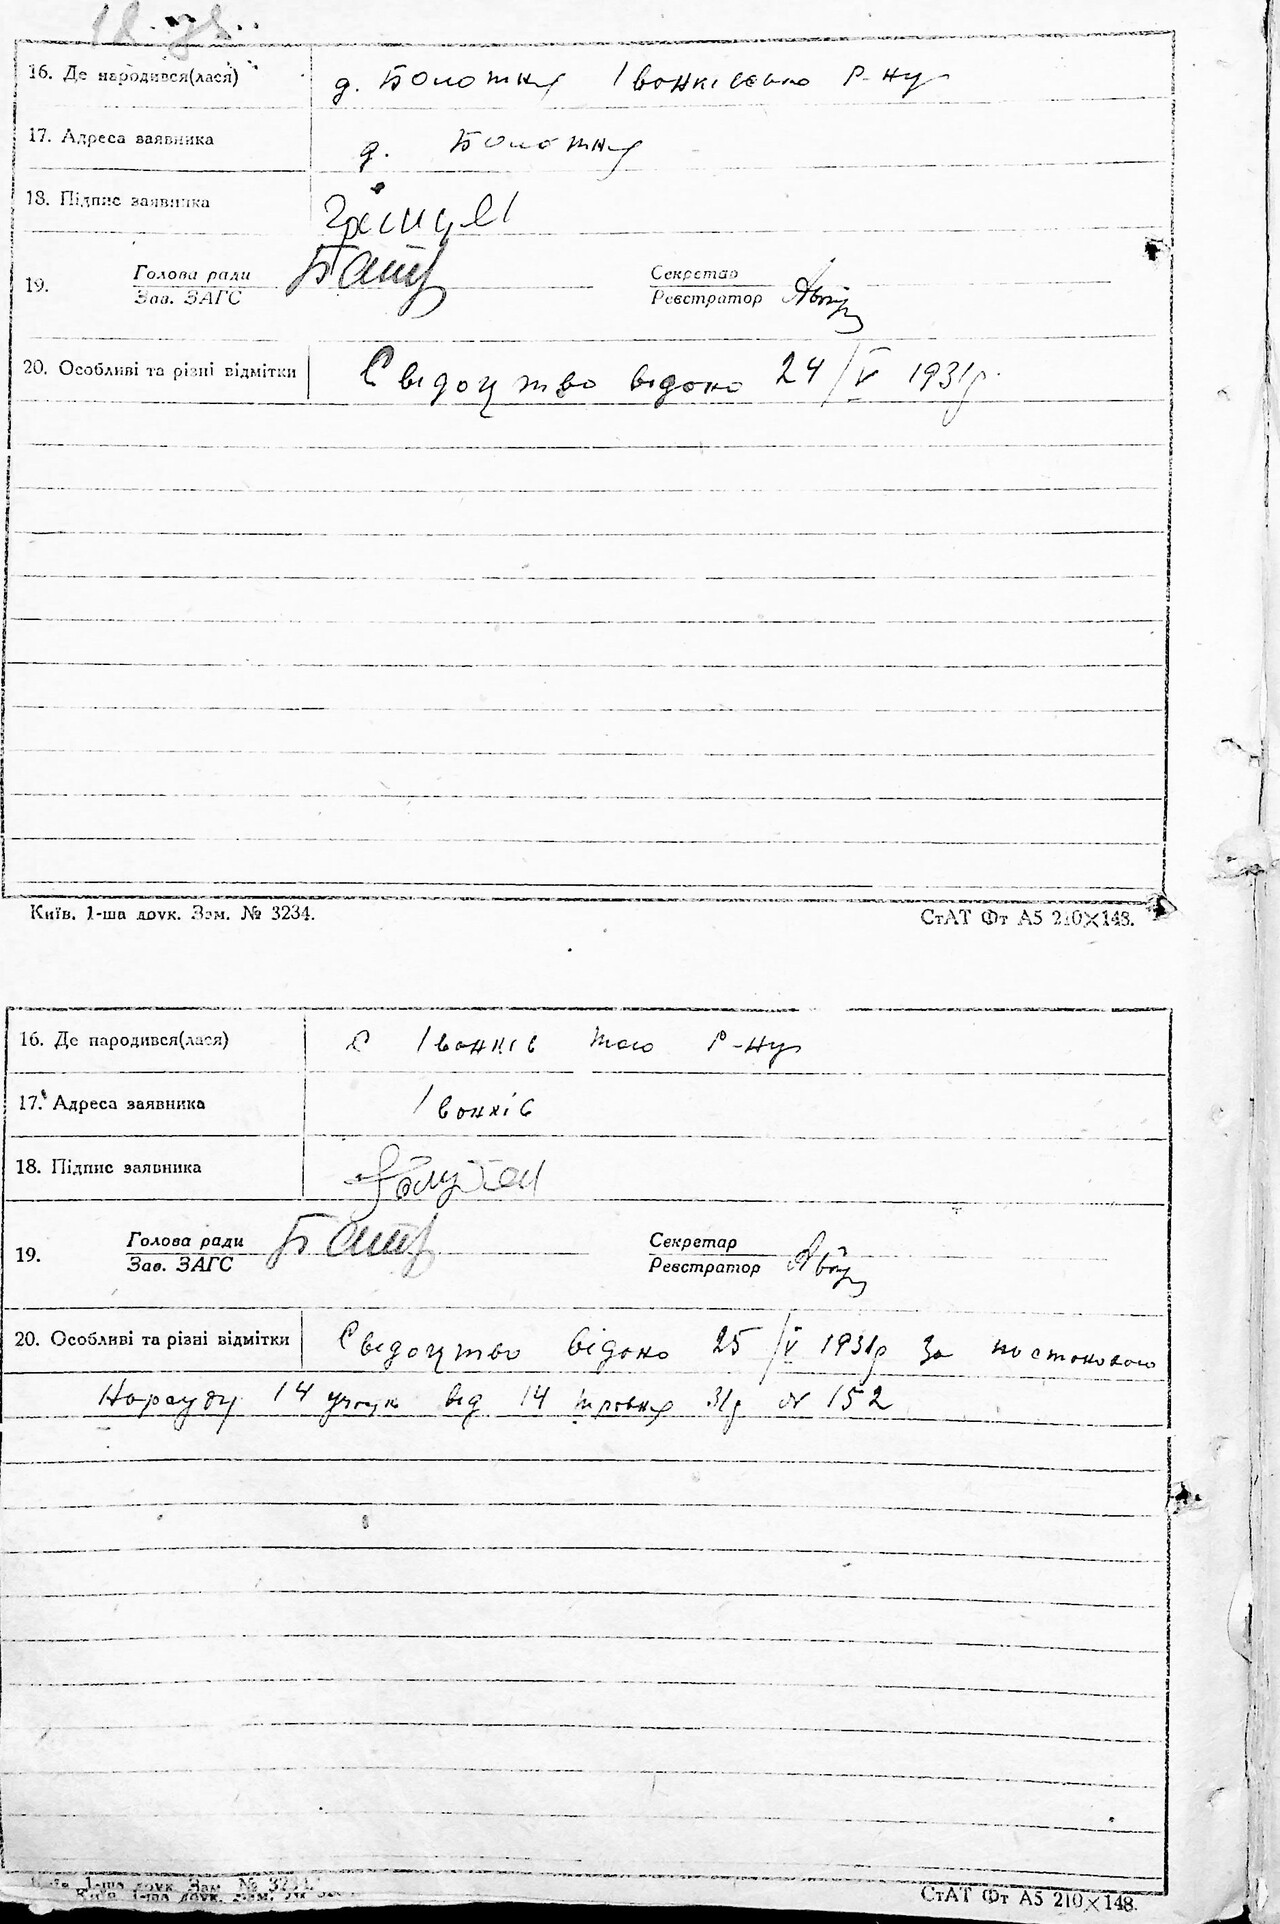 16. Де народився(лася) д. Болотня Іванківсько Р-ну
17. Адреса заявника д. Болотня
18. Підпис заявника
19. Голова ради Секретар
Зав. ЗАГС Реєстратор
20. Особливі та різні відмітки Свідоцтво відано 24/V 1931р.
Київ. 1-ша друк. Зам. № 3234. СтАТ Фт А5 210×148.
16. Де народився(лася) с Іванків того Р-ну
17. Адреса заявника Іванків
18. Підпис заявника
19. Голова ради Секретар
Зав. ЗАГС Реєстратор
20. Особливі та різні відмітки Свідоцтво відано 25/V 1931р за постановою
Нарсуду 14 учстк від 14 травня 31р № 152
Київ. 1-ша друк. Зам. № 3234.
Київ. 1-ша друк. Зам. №
СтАТ Фт А5 210×148.